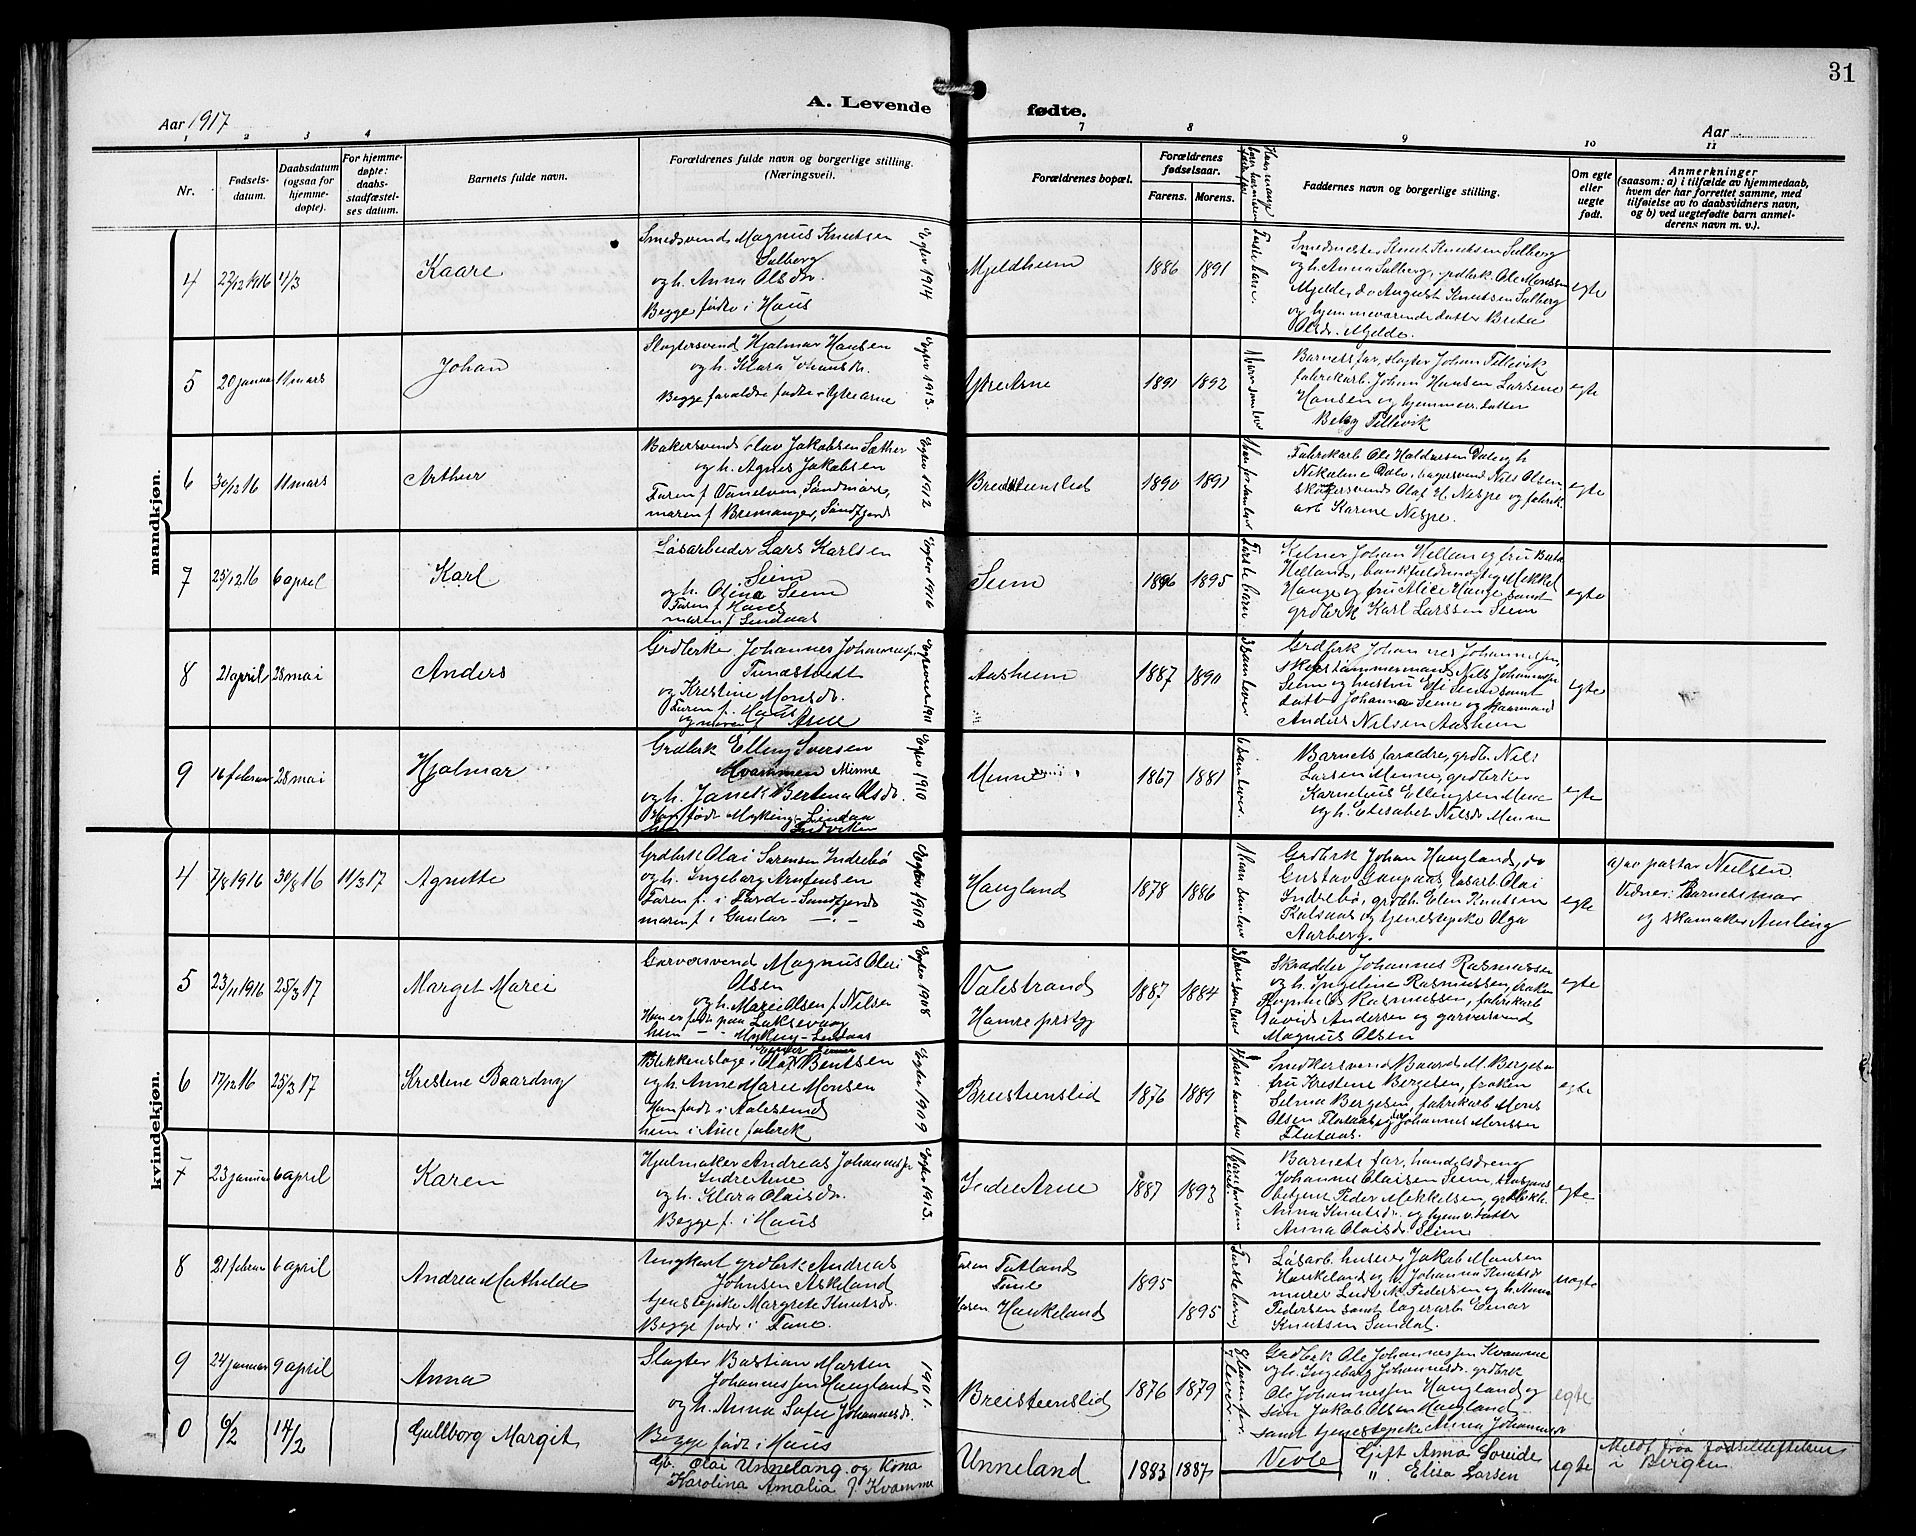 31
A. Levende
fødte.
Aar 1917
Aar
1 2 3 4 7 8 9 10 11
Nr.
Fødsels-
datum.
Daabsdatum
(ogsaa for
hjemme-
døpte).
For hjemme-
døpte:
daabs-
stadfæstel-
ses datum.
Barnets fulde navn.
Forældrenes fulde navn og borgerlige stilling.
(Næringsvei).
Forældrenes bopæl.
Forældrenes
fødselsaar.
Farens. Morens.
Faddernes navn og borgerlige stilling.
Om egte
eller
uegte
født.
Anmerkninger
(saasom: a) i tilfælde av hjemmedaab,
hvem der har forrettet samme, med
tilføielse av to daabsvidners navn,
og b) ved uegtefødte barn anmel-
derens navn m. v.).
mandkjøn.
4 27/12 1916 4/3 Kaare
Smedsvend Magnus Knutsen
Salberg
og h. Anna Olsdr.
Begge fødte i Haus
1914
Mjeldheim 1886 1891
Første barn.
Knut Knutsen Salberg
og h. Anna Salberg, grdbrk. Ole Monssen
Mjelde, do August Knutsen Salberg
og hjemmeværende datter Brita
Olsdr. Mjelde.
egte
5 20 januar 11 mars Johan
Slagtersvend Hjalmar Hansen
og h. Klara Johansdr.
Begge forældre fødte i Ytre Arne
1913.
Ytre Arne 1891 1892
Barnets far, slagter Johan Tellevik
fabrikarb. Johan Hansen Larsene
Hansen og hjemmev. datter
Tellevik
egte
6 30/12 16 11 mars Arthur
Bakersvend Olav Jakobsen Sæther
og h. Agnes Jakobsen
Faren f. Vanelven, Søndmøre,
moren f. Bremanger, Søndfjord
1912
Breistenslid 1890 1891
Fabrikarb Ole Haldorsen Dale og h
Nikoline Dale, bagersvend Nils Olsen
Olaf H. Nespe og fabrik
arb Karine Nespe.
egte
7 25/12 16 6 april Karl
Løsarbeider Lars Karlsen
Seim
og h. Olina Seim
Faren f. Haus
moren f. Lindaas
1916
Seim 1896 1895
Første barn
Kelner Johan Helland og fru
Helland, bankfuldmægtig Mikkel
Hauge og fru Alice Hauge samt
grdbrk Karl Larssen Seim
egte
8 21 april 28 mai Anders
Grdbrker Johannes Johannessen
Tunestvedt
og Kristine Monsdr.
Faren f. Haus
og moren f. Arne
1911
Aasheim 1887 1890
3 som lever
Grdbrk Johannes Johannessen,
skibstømmermand Nils Johannessen
Seim og hustru Eli Seim samt
datter Johanna Seim og
Anders Nilsen Aasheim
egte
9 16 februar 28 mai Hjalmar
Grdbrk Elling Iversen
Kvammen Menne
og h. Bertina Olsdr.
Han født Myking Lindaas
hun Indviken
1910
Menne 1867 1881
6 som lever.
Barnets forældre, grdb. Nils
Larsen Menne, grdbrker
Kornelius Ellingsen Mene
og h. Elisabet Nilsdr Menne
egte
kvindekjøn.
4 7/8 1916 30/8 16 11/3 17 Agnette
Grdbrk Olai Sørensen Indrebø
og h. Ingeborg Arnfinsen
Faren f. i Førde - Søndfjord
moren f. i Gaular - " -
1909
Haugland 1878 1886
Grdbrk Johan Haugland, do
Gustav Gaupaas løsarb. Olai
Indrebø, grdb. Elen Knutsen
Kalsaas og tjenestepike Olga
Aarberg.
egte
a) av pastor Nielsen
Vidner: Barnets mor
og skomaker Amling
5 23/11 1916 25/3 17 Margit Marei
Garversvend Magnus Olai
Olsen
og h. Marei Olsen f. Nilsen
Han er født paa Laksevaag
hun " " Myking - Lindaas
1908
Valestrand
Hamre prstgj
1887 1884
Skrædder Johannes Rasmussen
og h. Ingeline Rasmussen, frøken
Ragnhild Rasmussen, fabrikarb
David Andersen og garversvend
Magnus Olsen
egte
6 17/12 16 25/3 17 Kristine Baardny
Blikkenslager Olaf Bentsen
og h. Anne Marie Monsen
Han født i Aalesund
hun i Arne fabrik
1909
Breistenslid 1876 1889
Baard M. Bergesen
fru Kristine Bergesen, frøken
Selma Bergesen, fabrikarb Mons
Olsen Flataas og Johannes Monssen
Flataas.
egte
7 23 januar 6 april Karen
Hjulmaker Andreas Johannessen
Indre Arne
og h. Klara Olaisdr.
Begge f. i Haus
1913.
Indre Arne 1887 1893
Barnets far, handelsdreng
Johannes Olaisen Seim,
betjent Peder Mikkelsen,
Anna Knutsdr. og hjemv. datter
Anna Olaisdr. Seim
egte
8 21 februar 6 april Andrea Mathilde
Ungkarl grdbrk Andreas
Johnsen Askeland
tjenestepike Margrete Knutsdr.
Begge født i Fane.
Faren Tatland
Fane
Moren Haukeland
1895
1895
Første barn
Løsarb. huseier Jakob Monsen
Haukeland og h. Johanna Knutsdr
murer Ludv. M. Pedersen og h. Anna
Pedersen samt lagerarb Einar
Knutsen Sandal.
uegte
9 24 januar 9 april Anna
Slagter Bastian Marten
Johannessen Haugland
og h. Anna Sofie Johannesdr.
Begge født i Haus
1901.
Breistenslid 1876 1879
Grdbrk Ole Johannessen Kvamme
og h. Ingeborg Johannesdr. grdbrk
Ole Johannessen Haugland og
søn Jakob Olsen Haugland
samt tjenestepike Anna Johannesen
egte
0 6/2 14/2 Gullborg Margit
Gb. Olai Unneland og kona
Karolina Amalia f. Kvamme
Unneland 1883 1887
Gift Anna Soreide
" Elisa Larsen
egte
Meldt fraa Fødselstiftelsen
i Bergen